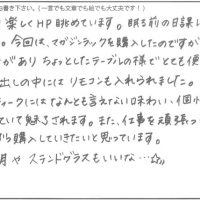 書き下さい。(一言でも文章でも絵でも大丈夫です！)
楽しくHP眺めています。眠る前の日課
。今回は、マガジンラックを購入したのですが
があり ちょっとしたテーブルの様で とても便
出しの中には リモコンも入れられました。
ィークには なんとも言えない味わい、個
ていて魅了されます。また、仕事を頑張っ
ら購入していきたいと思っています。
月や ステンドグラスもいいな…☆